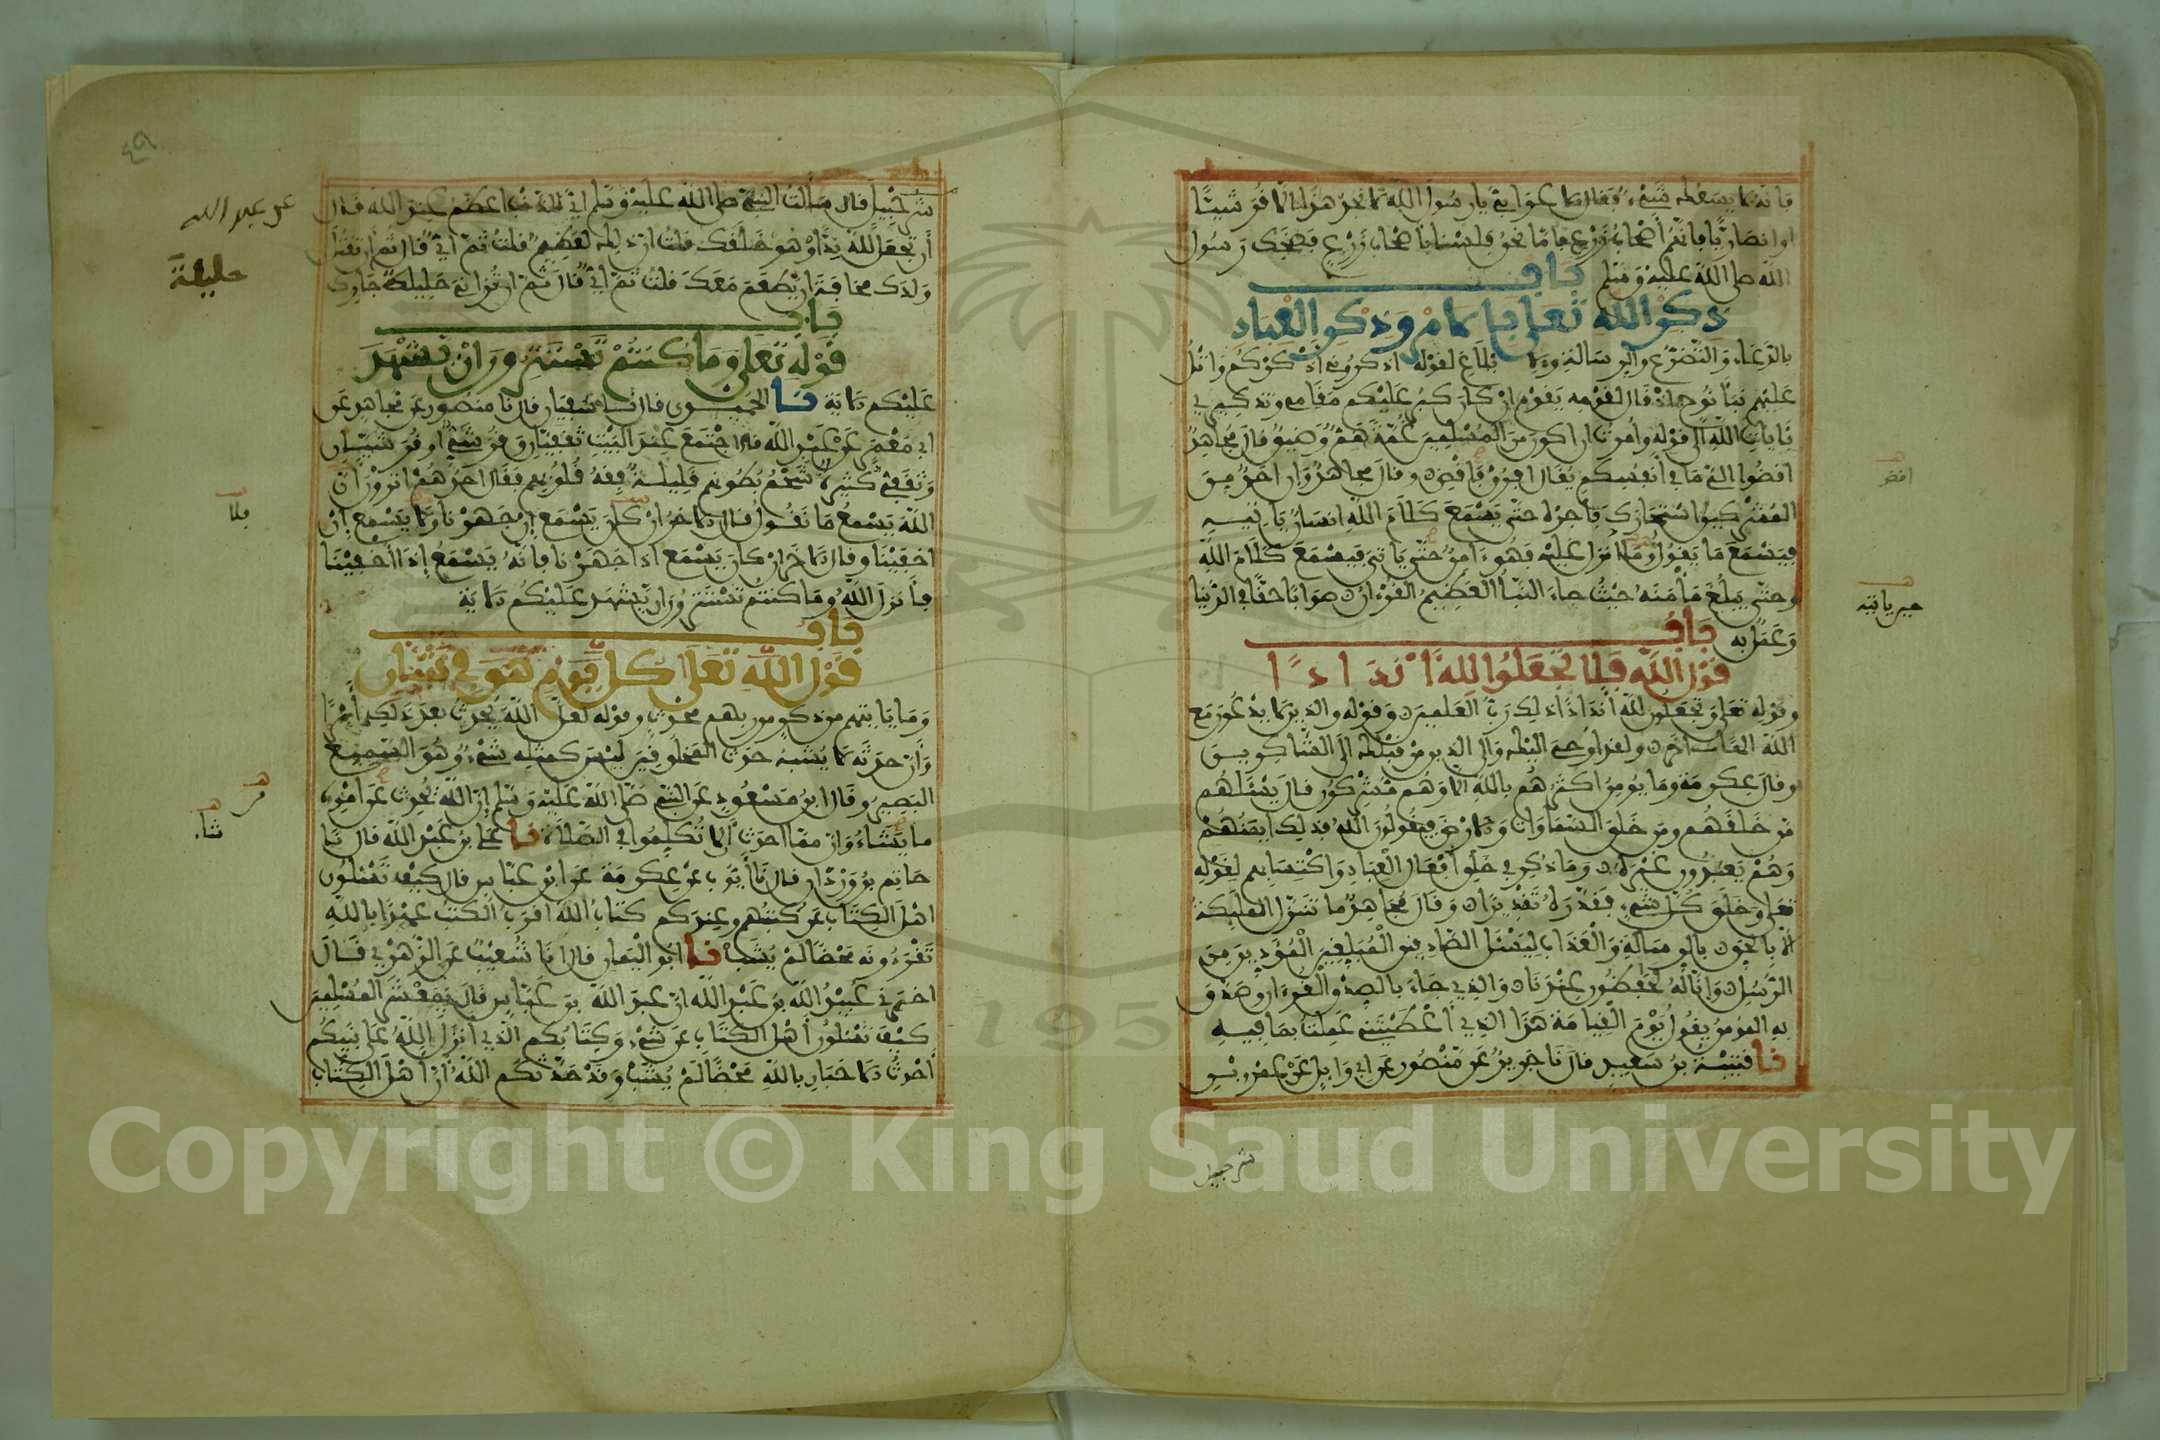 فانه لا يسعك شيء فقال الاعرابي يا رسول الله لا تجد هذا الا قرشيا
او انصاريا فانهم أصحاب زرع فاما نحن فلسنا بأصحاب زرع فضحك رسول
الله صلى الله عليه وسلم باب
ذكر الله تعلى بالامر وذكر العباد
بالدعاء والتضرع والرسالة والابلاغ لقوله اذكروني أذكركم واتل
عليهم نبأ نوح اذ قال لقومه يقوم ان كان كبر عليكم مقامي وتذكيري
بآيات الله الى قوله وأمرت ان اكون من المسلمين غمة هم وضيق قال مجاهد
اقضوا الي ما في أنفسكم يقال افرق فاقض وقال مجاهد وان احد من
المشركين استجارك فأجره حتى يسمع كلام الله انسان يأتيه
فيسمع ما يقول وما أنزل عليه فهو آمن حتى يأتي فيسمع كلام الله
وحتى يبلغ مأمنه حيث جاء النبأ العظيم القرءان صوابا حقا في الدنيا
وعمل به باب
قول الله فلا تجعلوا لله أندادا
وقوله تعلى وتجعلون لله أندادا ذلك رب العلمين وقوله والذين لا يدعون مع
الله الها آخر ولقد أوحي اليك والى الذين من قبلك الى الشاكرين
وقال عكرمة وما يومن اكثرهم بالله الا وهم مشركون قال يسئلهم
من خلقهم ومن خلق السماوات والارض فيقولون الله فذلك ايمنهم
وهم يعبدون غيره وما ذكر في خلق أفعال العباد واكتسابهم لقوله
تعلى وخلق كل شيء فقدره تقديرا وقال مجاهد ما تنزل الملئكة
الا بالحق بالرسالة والعذاب ليسئل الصادقين المبلغين المؤدين من
الرسل وإنا له لحفظون عندنا والذي جاء بالصدق القرءان وصدق
به المومن يقول يوم القيامة هذا الذي أعطيتني عملت بما فيه
نا قتيبة بن سعيد قال نا جرير عن منصور عن ابي وايل عن عمرو بن
شرحبيل
افض
حين ياتيه
٤٩
شرحبيل قال سألت النبي صلى الله عليه وسلم اي الذنب اعظم عند الله قال
أن تجعل لله ندا وهو خلقك قلت ان ذلك لعظيم قلت ثم اي قال ثم ان تقتل
ولدك مخافة ان يطعم معك قلت ثم اي قال ثم ان تزاني حليلة جارك
باب
قوله تعلى وما كنتم تستترون أن يشهد
عليكم الاية نا الحميدي قال نا سفين قال نا منصور عن مجاهد عن
ابي معمر عن عبد الله قال اجتمع عند البيت ثقفيان وقرشي او قرشيان
وثقفي كثيرة شحم بطونهم قليلة فقه قلوبهم فقال احدهم اترون أن
الله يسمع ما نقول قال الاخر ان كان يسمع إن جهرنا ولا يسمع إن
اخفينا وقال الاخر ان كان يسمع اذا جهرنا فانه يسمع إذا أخفينا
فأنزل الله وما كنتم تستترون ان يشهد عليكم الاية
باب
قول الله تعلى كل يوم هو في شأن
وما ياتيهم من ذكر من ربهم محدث وقوله لعل الله يحدث بعد ذلك أمرا
وأن حدثه لا يشبه حدث المخلوقين ليس كمثله شيء وهو السميع
البصير وقال ابن مسعود عن النبي صلى الله عليه وسلم إن الله يحدث من امره
ما يشاء وان مما احدث الا تكلموا في الصلاة نا علي بن عبد الله قال نا
حاتم بن وردان قال نا أيوب عن عكرمة عن ابن عباس قال كيف تسئلون
اهل الكتاب عن كتبهم وعندكم كتاب الله اقرب الكتب عهدا بالله
تقرءونه محضا لم يشب نا ابو اليمان قال انا شعيب عن الزهري قال
اخبرني عبيد الله بن عبد الله ان عبد الله بن عباس قال يمعشر المسلمين
كيف تسئلون أهل الكتاب عن شيء وكتابكم الذي أنزل الله على نبيكم
أحدث الاخبار بالله محضا لم يشب وقد حدثكم الله أن أهل الكتاب
عن عبد الله
حليلة
من
شاء
Copyright © King Saud University
195